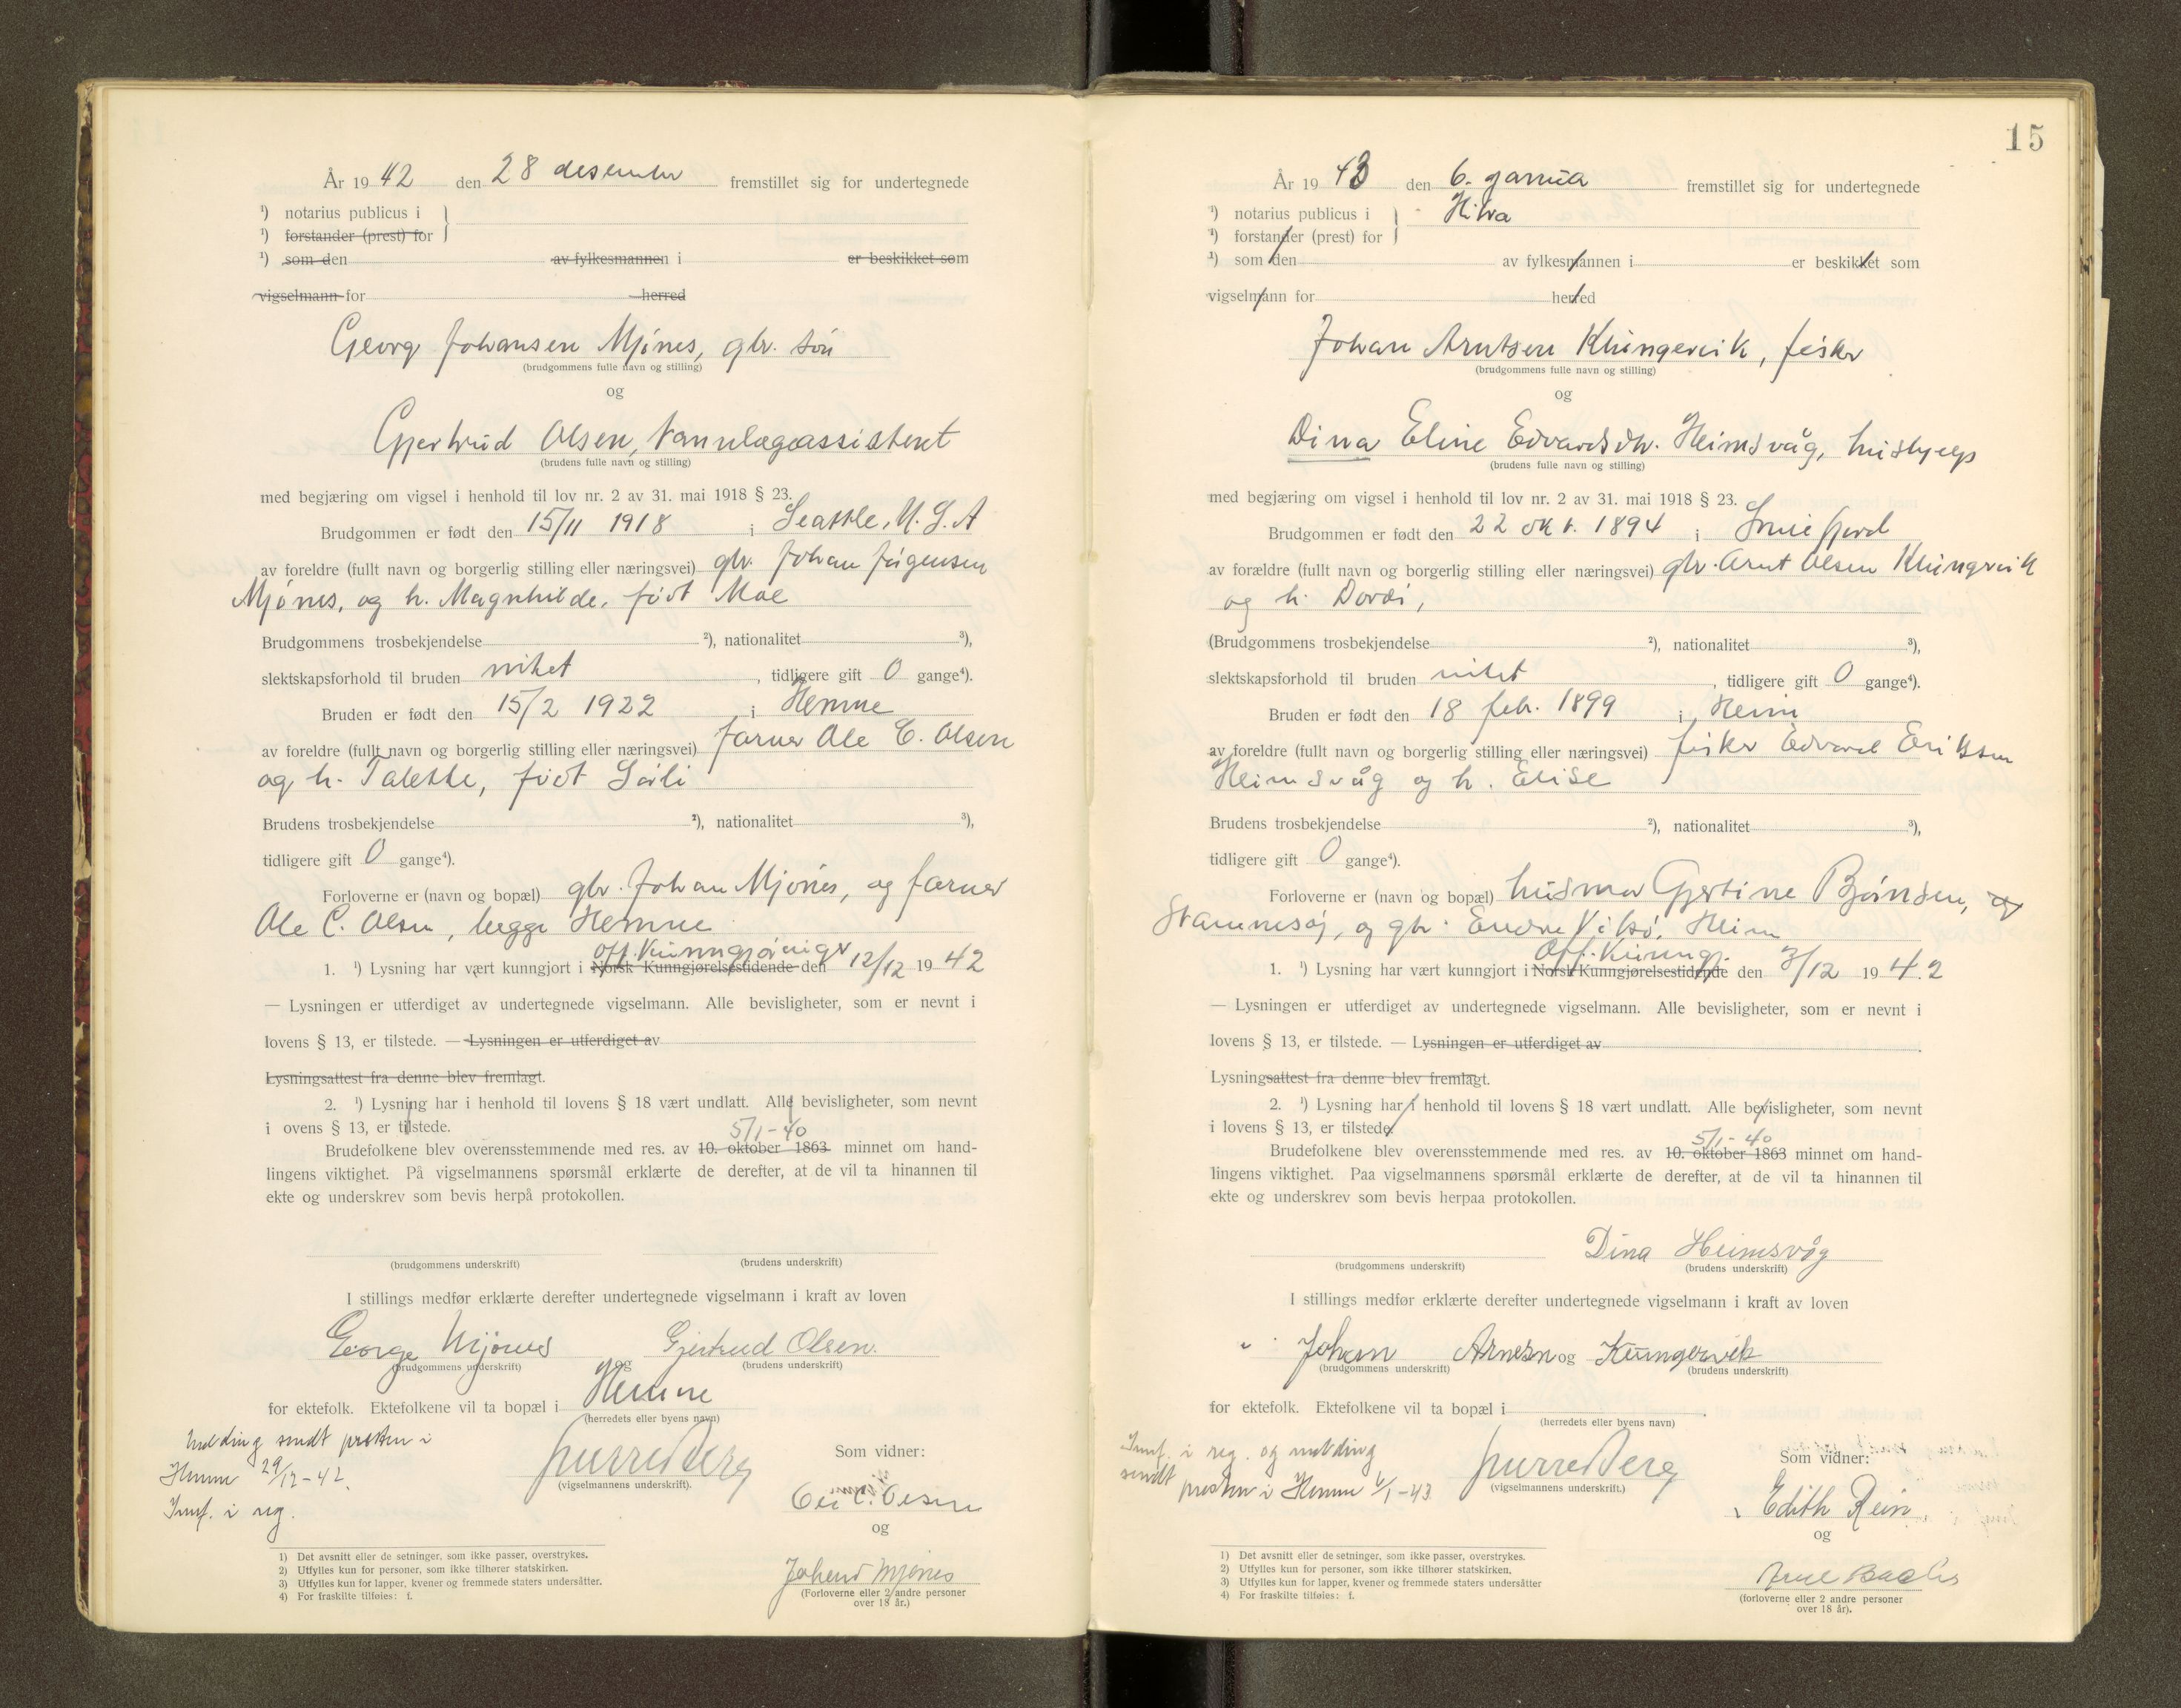 År 19 42 den 28 desember fremstillet sig for undertegnede
¹) notarius publicus i
¹) forstander (prest) for
¹) som den av fylkesmannen i er beskikket som
vigselmann for herred
Georg Johansen Mjønes, gbr. søn
(brudgommens fulle navn og stilling)
og
Gjertrud Olsen, tannlægeassistent
(brudens fulle navn og stilling)
med begjæring om vigsel i henhold til lov nr. 2 av 31. mai 1918 § 23.
Brudgommen er født den 15/11 1918 i Seattle, U.S.A
av foreldre (fullt navn og borgerlig stilling eller næringsvei) gbr. Johan Jørgensen
Mjønes, og h. Magnhilde, født Moe
Brudgommens trosbekjendelse ²), nationalitet ³),
slektskapsforhold til bruden intet, tidligere gift 0 gange⁴).
Bruden er født den 15/2 1922 i Hemne
av foreldre (fullt navn og borgerlig stilling eller næringsvei) farver Ole C. Olsen
og h. Talette, født
Brudens trosbekjendelse ²), nationalitet ³),
tidligere gift 0 gange⁴).
Forloverne er (navn og bopæl) gbr. Johan Mjønes, og farver
Ole C. Olsen, begge Hemne
Off. Kunngjøringer
1. ¹) Lysning har vært kunngjort i Norsk Kunngjørelsestidende den 12/12 19 42
— Lysningen er utferdiget av undertegnede vigselmann. Alle bevisligheter, som er nevnt i
lovens § 13, er tilstede. — Lysningen er utferdiget av
Lysningsattest fra denne blev fremlagt.
2. ¹) Lysning har i henhold til lovens § 18 vært undlatt. Alle bevisligheter, som nevnt
i ovens § 13, er tilstede.
5/1-40
Brudefolkene blev overensstemmende med res. av 10. oktober 1863 minnet om hand-
lingens viktighet. På vigselmannens spørsmål erklærte de derefter, at de vil ta hinannen til
ekte og underskrev som bevis herpå protokollen.
(brudgommens underskrift) (brudens underskrift)
I stillings medfør erklærte derefter undertegnede vigselmann i kraft av loven
George Mjønes og Gjertrud Olsen.
(brudgommens underskrift) (brudens underskrift)
for ektefolk. Ektefolkene vil ta bopæl i Hemne
(herredets eller byens navn)
Melding sendt presten i
Hemne 29/12-42.
Innf. i reg.
(vigselmannens underskrift).
Som vidner:
Ole C. Olsen
og
Johan Mjønes
(Forloverne eller 2 andre personer
over 18 år.)
1) Det avsnitt eller de setninger, som ikke passer, overstrykes.
2) Utfylles kun for personer, som ikke tilhører statskirken.
3) Utfylles kun for lapper, kvener og fremmede staters undersåtter.
4) For fraskilte tilføies: f.
15
År 19 43 den 6. januar fremstillet sig for undertegnede
¹) notarius publicus i Hitra
¹) forstander (prest) for
¹) som den av fylkesmannen i er beskikket som
vigselmann for herred
Johan Arntsen Klungervik, fisker
(brudgommens fulle navn og stilling)
og
Dina Eline Edvardsdtr. Heimsvåg, hushjelp
(brudens fulle navn og stilling)
med begjæring om vigsel i henhold til lov nr. 2 av 31. mai 1918 § 23.
Brudgommen er født den 22 okt. 1894 i Snillfjord
av forældre (fullt navn og borgerlig stilling eller næringsvei) gbr. Arnt Olsen Klungrvik
og h. Dordi,
(Brudgommens trosbekjendelse ²), nationalitet ³),
slektskapsforhold til bruden intet, tidligere gift 0 gange⁴).
Bruden er født den 18 feb. 1899 i Heim
av foreldre (fullt navn og borgerlig stilling eller næringsvei) fisker Edvard Eriksen
Heimsvåg og h. Elise
Brudens trosbekjendelse ²), nationalitet ³),
tidligere gift 0 gange⁴).
Forloverne er (navn og bopæl) husmor Gjertine Bjørnsen, og
Stamnesøy, og gbr. Endre Vitsø, Heim
Off. Kunngj.
1. ¹) Lysning har vært kunngjort i Norsk Kunngjørelsestidende den 3/12 19 42
— Lysningen er utferdiget av undertegnede vigselmann. Alle bevisligheter, som er nevnt i
lovens § 13, er tilstede. — Lysningen er utferdiget av .
Lysningsattest fra denne blev fremlagt.
2. ¹) Lysning har i henhold til lovens § 18 vært undlatt. Alle bevisligheter, som nevnt
i lovens § 13, er tilstede.
5/1-40
Brudefolkene blev overensstemmende med res. av 10. oktober 1863 minnet om hand-
lingens viktighet. Paa vigselmannens spørsmål erklærte de derefter, at de vil ta hinannen til
ekte og underskrev som bevis herpaa protokollen.
Dina Heimsvåg
(brudgommens underskrift) (brudens underskrift)
I stillings medfør erklærte derefter undertegnede vigselmann i kraft av loven
Johan Arnesn og Klungervik
(brudgommens underskrift) (brudens underskrift)
for ektefolk. Ektefolkene vil ta bopæl i .
(herredets eller byens navn)
Innf. i reg. og melding
sendt presten i Hemne 6/1-43
(vigselmannens underskrift.)
Som vidner:
Edith Rein
og
(forloverne eller 2 andre personer
over 18 år).
1) Det avsnitt eller de setninger, som ikke passer, overstrykes.
2) Utfylles kun for personer, som ikke tilhører statskirken.
3) Utfylles kun for lapper, kvener og fremmede staters undersåtter
4) For fraskilte tilføies: f.